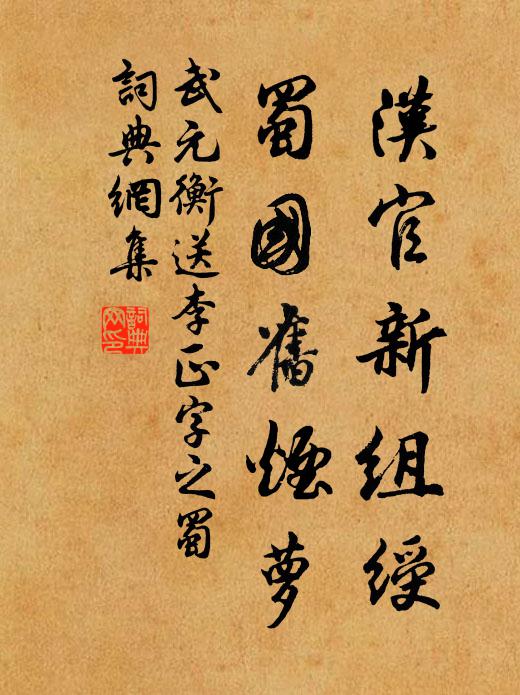 漢官新組綬
蜀國舊煙蘿
武元衡送李正字之蜀
詞典網集
詞典網印